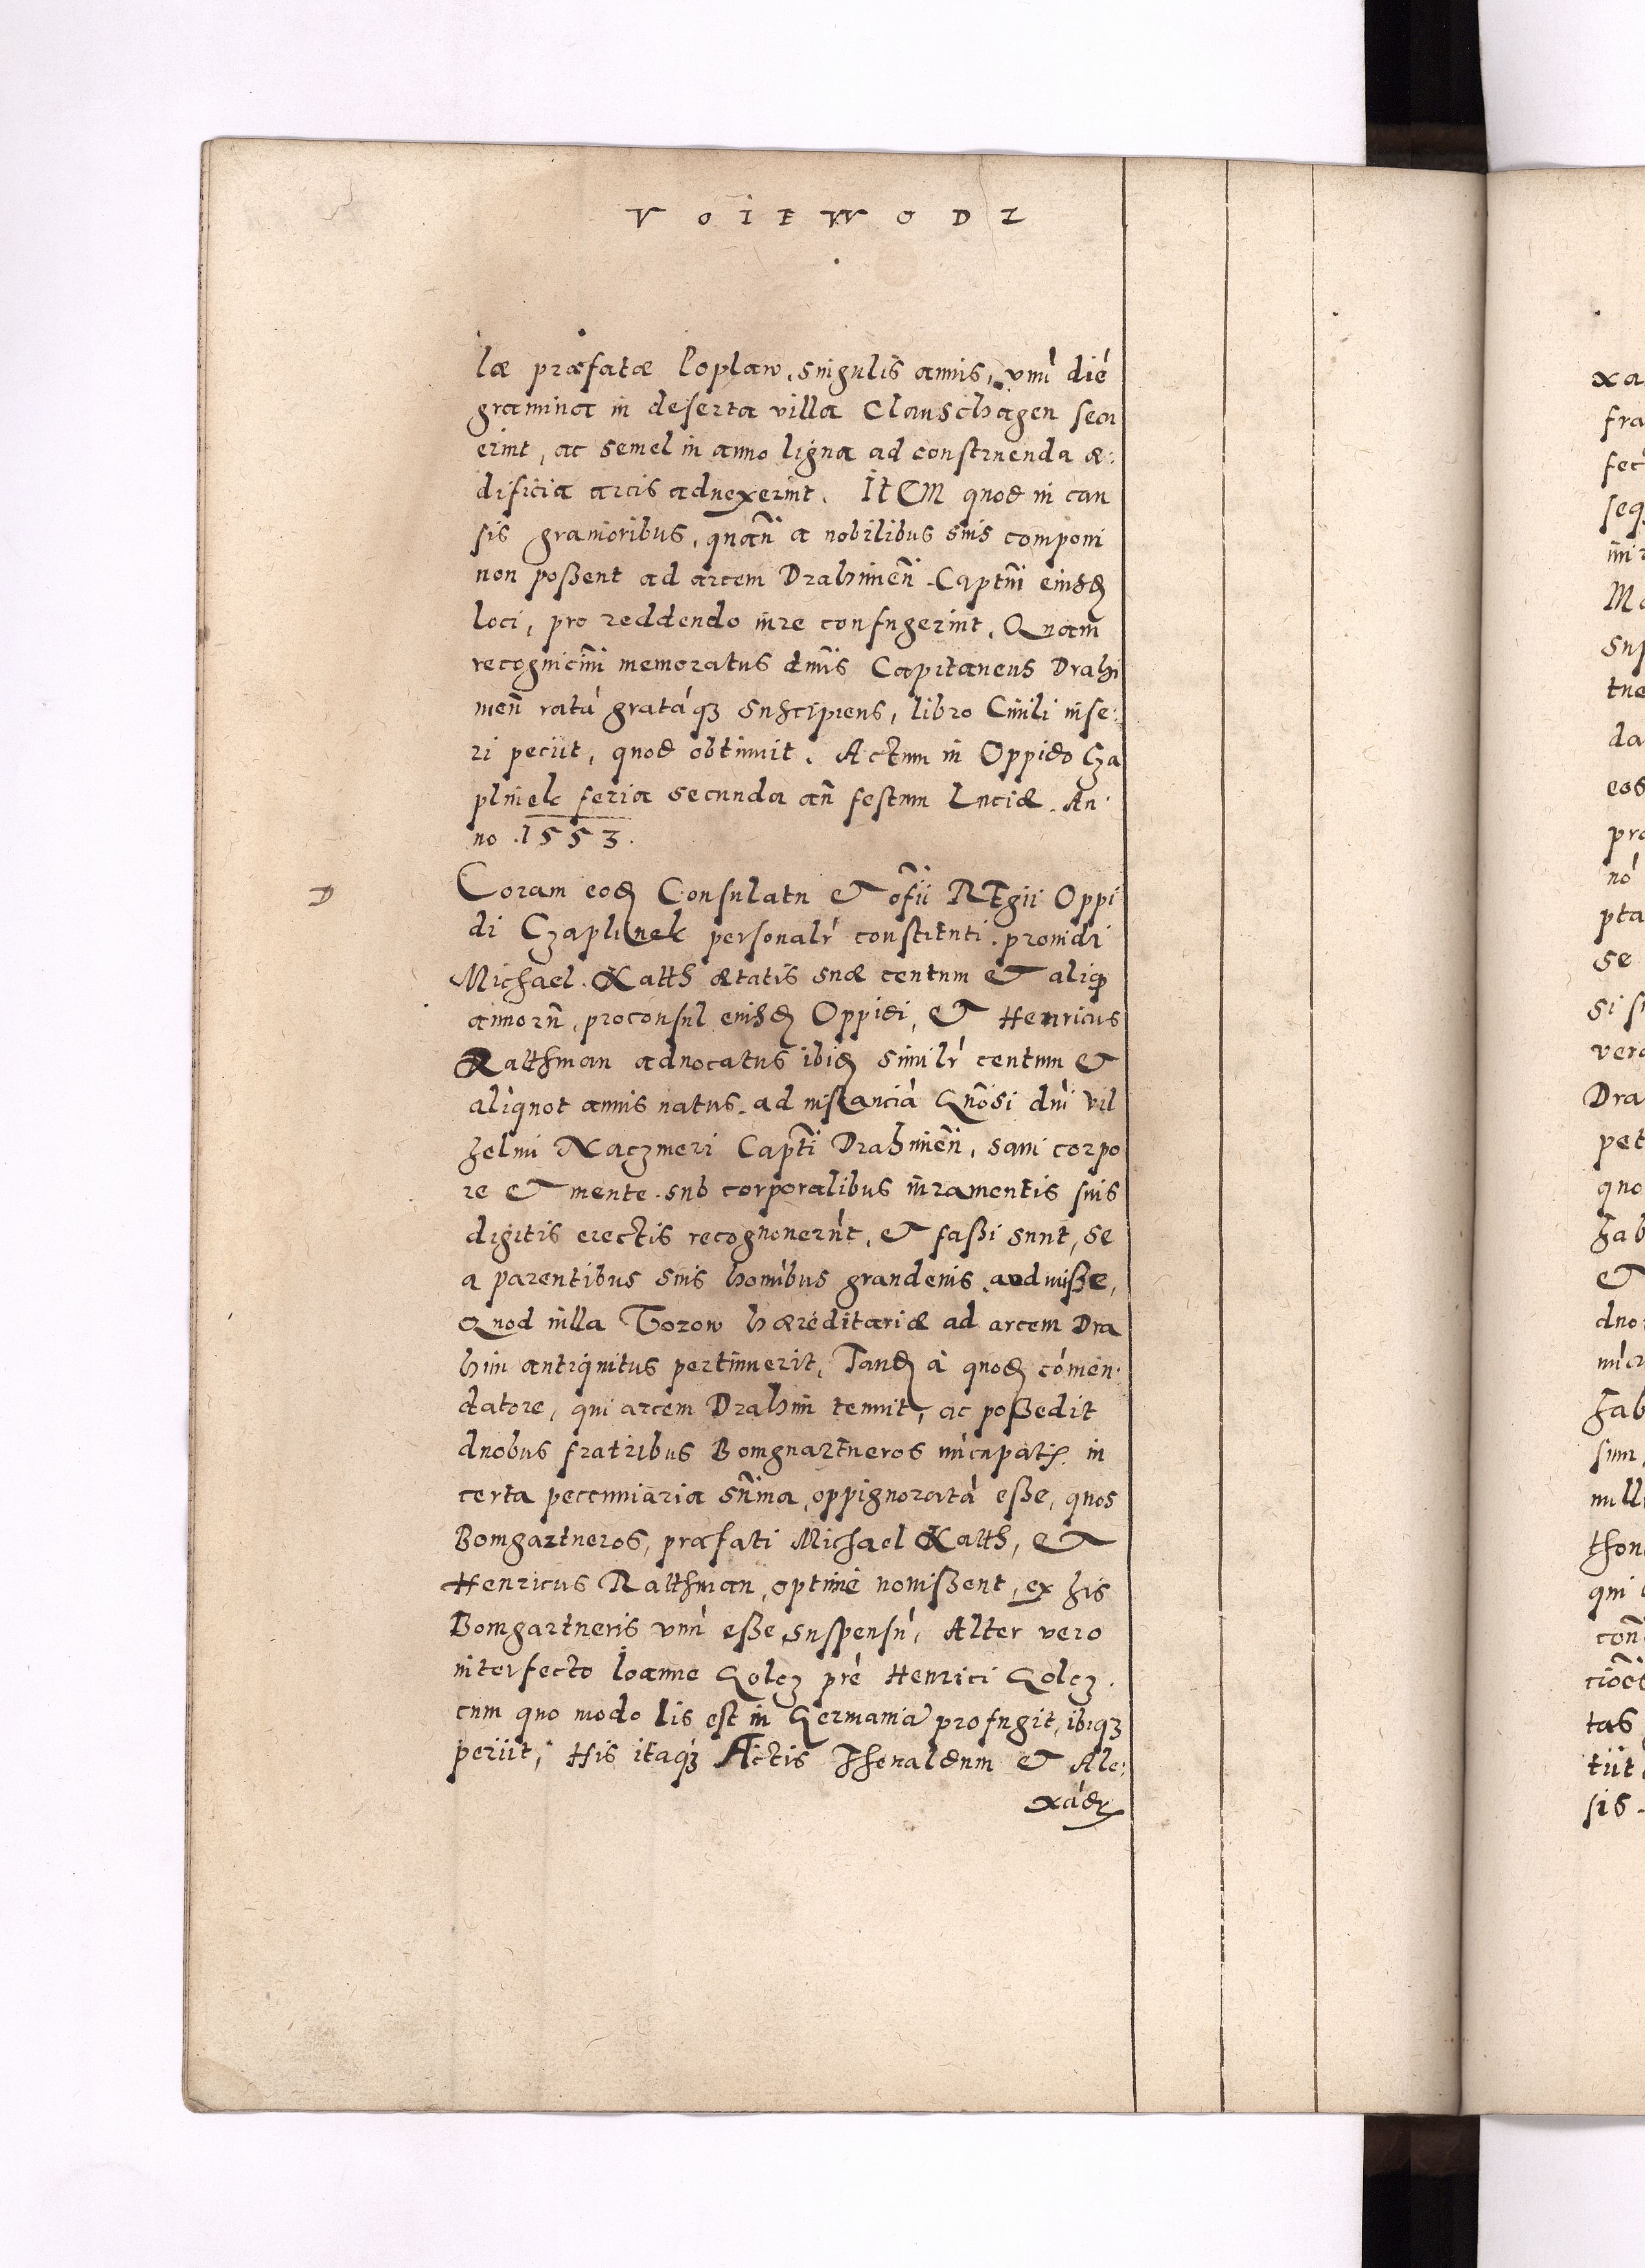 VOIEWODZ
læ præfatæ Coplaw, singulis annis, vnú dié
gramina in deserta villa Clauschagen secu
erint, ac semel in anno ligna ad construenda æ:
dificia arcis aduexerint. ItEM quod in cau
sis grauioribus, quań a nobilibus suis componi
non poßent ad arcem Drahimeń Captńi eiusd
loci, pro reddendo iure confugerint, Quam
recognicińi memoratus dnús Capitaneus Drahi
meń ratá gratáq3 suscipiens, libro Ciuili inse:
ri peciit, quod obtinuit. Actum in Oppido Cza
plinek feria secunda añ festum Luciæ. An:
no .1553.
D
Coram eod Consulatu & offii REgii Oppi
di Czaplinek personalr constituti. prouidi
Michael Kalth ætatis suæ centum & aliq
annorũ, proconsul eiusd Oppidi, & Henricus
Ralthman aduocatus ibid similr centum &
aliquot annis natus, ad instanciá Gnósi dni Vil
helmi Naczmeri Capti Drahimeń, sani corpo
re & mente sub corporalibus iuramentis suis
digitis erectis recognouerút, & faßi sunt, se
a parentibus suis homíbus grandeuis audiuiße,
Quod uilla Tozow hæreditariæ ad arcem Dra
him antiquitus pertinuerit, Tand á quod cómen:
datore, qui arcem Drahim tenuit, ac poßedit
duobus fratribus Bomgnartneros núcupatis in
certa pecuniaria sńma oppignoratá eße, quos
Bomgartneros, præfati Michael Kalth, &
Henricus Ralthman, optimé nouißent, ex his
Bomgartneris vnú eße suspensú, Alter vero
interfecto Ioanne Golcz pré Henrici Golcz.
cum quo modo lis est in Germaniá profugit, ibiq3
periit, His itaq3 Actis Thenaldum & Ale:
xádr